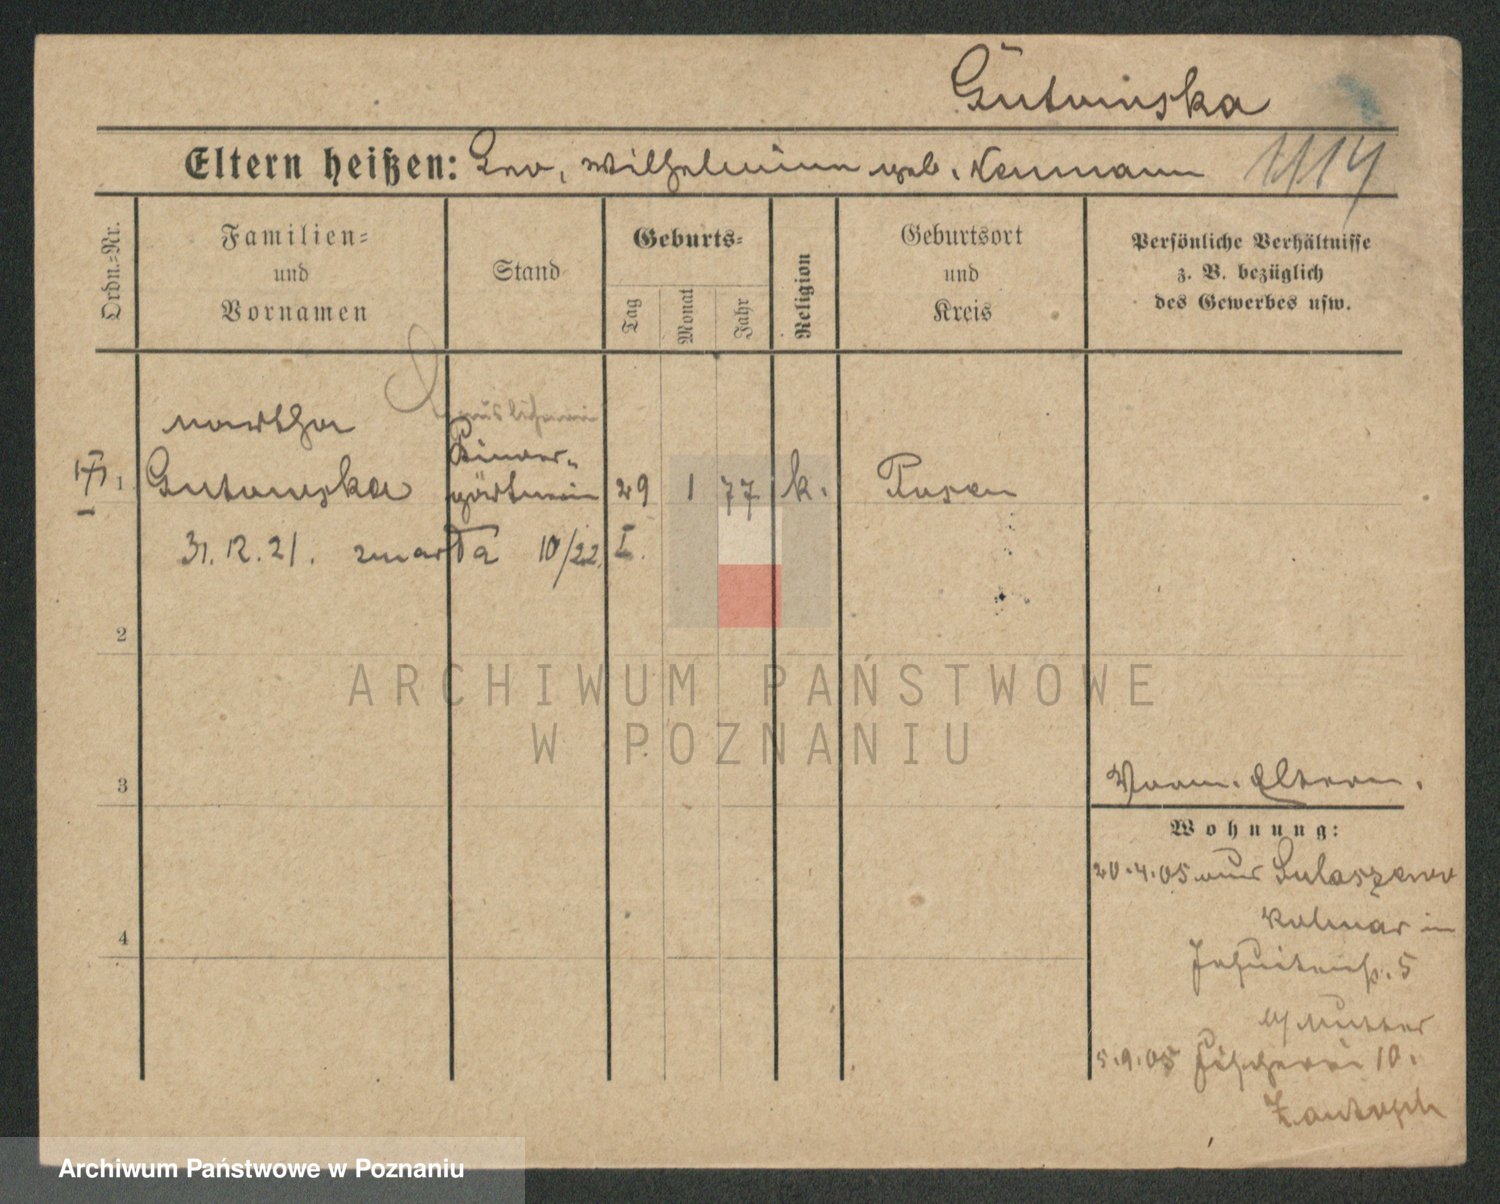 Gutowska
Eltern heißen: Leo, Wilhelmine geb. Neumann
Ordn.=Nr.
Familien=
und
Vornamen
Stand
Geburts=
Tag
Monat
Jahr
Religion
Geburtsort
und
Kreis
Persönliche Verhältnisse
z. B. bezüglich
des Gewerbes usw.
Martha
Kinder-
1 Gutowska gärtnerin 29 1 77 k. Posen
31.12.21. zmarła 10/22 I.
2
3
4
Eltern.
Wohnung:
20.4.05 aus
Kolmar in
Jesuitenstr. 5
Mutter
5.9.05 Fischerei 10.
ARCHIWUM PAŃSTWOWE
W POZNANIU
Archiwum Państwowe w Poznaniu